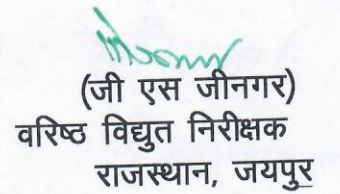 (जी एस जीनगर)
वरिष्ठ विद्युत निरीक्षक
राजस्थान, जयपुर